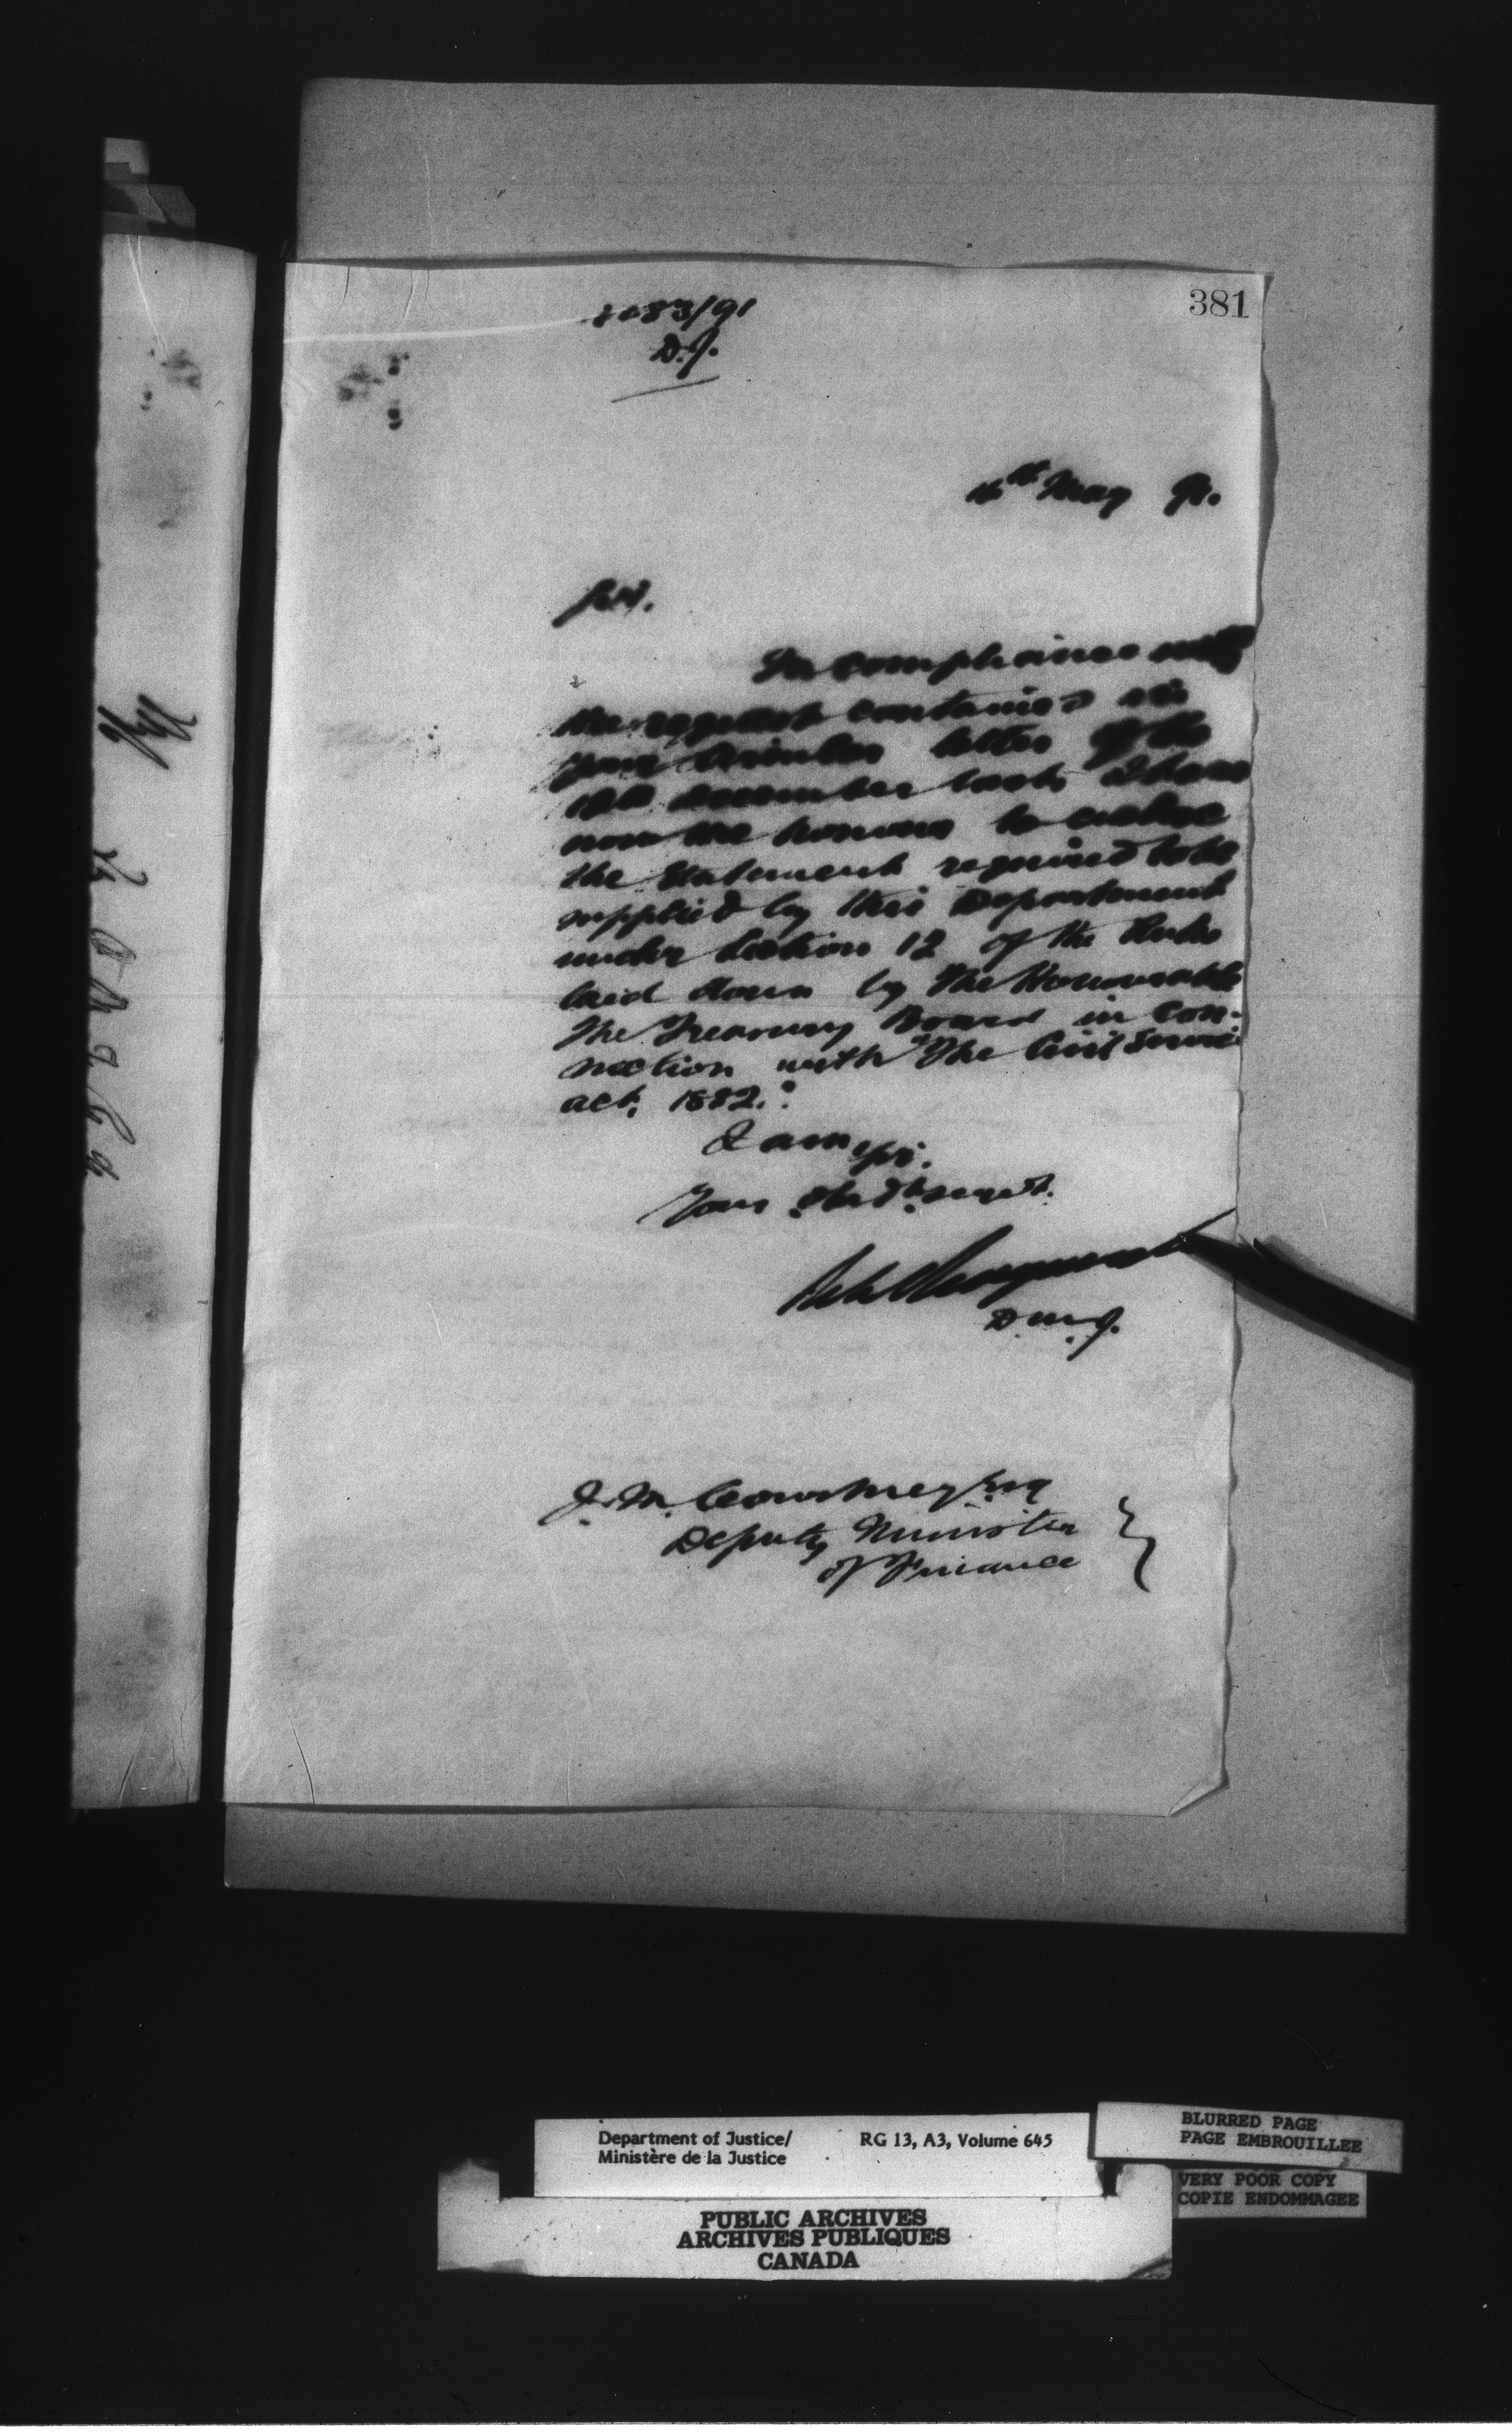 381
83/91
D.J.
16th May 91.
Sir.
In compliance with
the request contained in
your circular letter of the
December last, I have
now the honour to enclose
the Statement required to be
supplied by this Department
under Section 12 of the Rules
laid down by The Honourable
The Treasury Board in con-
nection with "The Civil Service
act, 1882."
I am, Sir.
Your Obedt. servt.
D.M.J.
J. M. Courtney Esq
Deputy Minister
of Finance
Department of Justice/
Ministère de la Justice
RG 13, A3, Volume 645
BLURRED PAGE
PAGE EMBROUILLEE
VERY POOR COPY
COPIE ENDOMMAGEE
PUBLIC ARCHIVES
ARCHIVES PUBLIQUES
CANADA